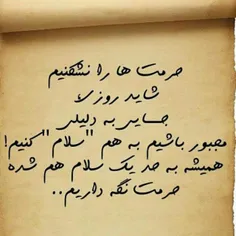 حرمت ها را نشکنیم
شاید روزی
جایی به دلیلی
مجبور باشیم به هم "سلام" کنیم!
همیشه به حد یک سلام هم شده
حرمت نگه داریم..